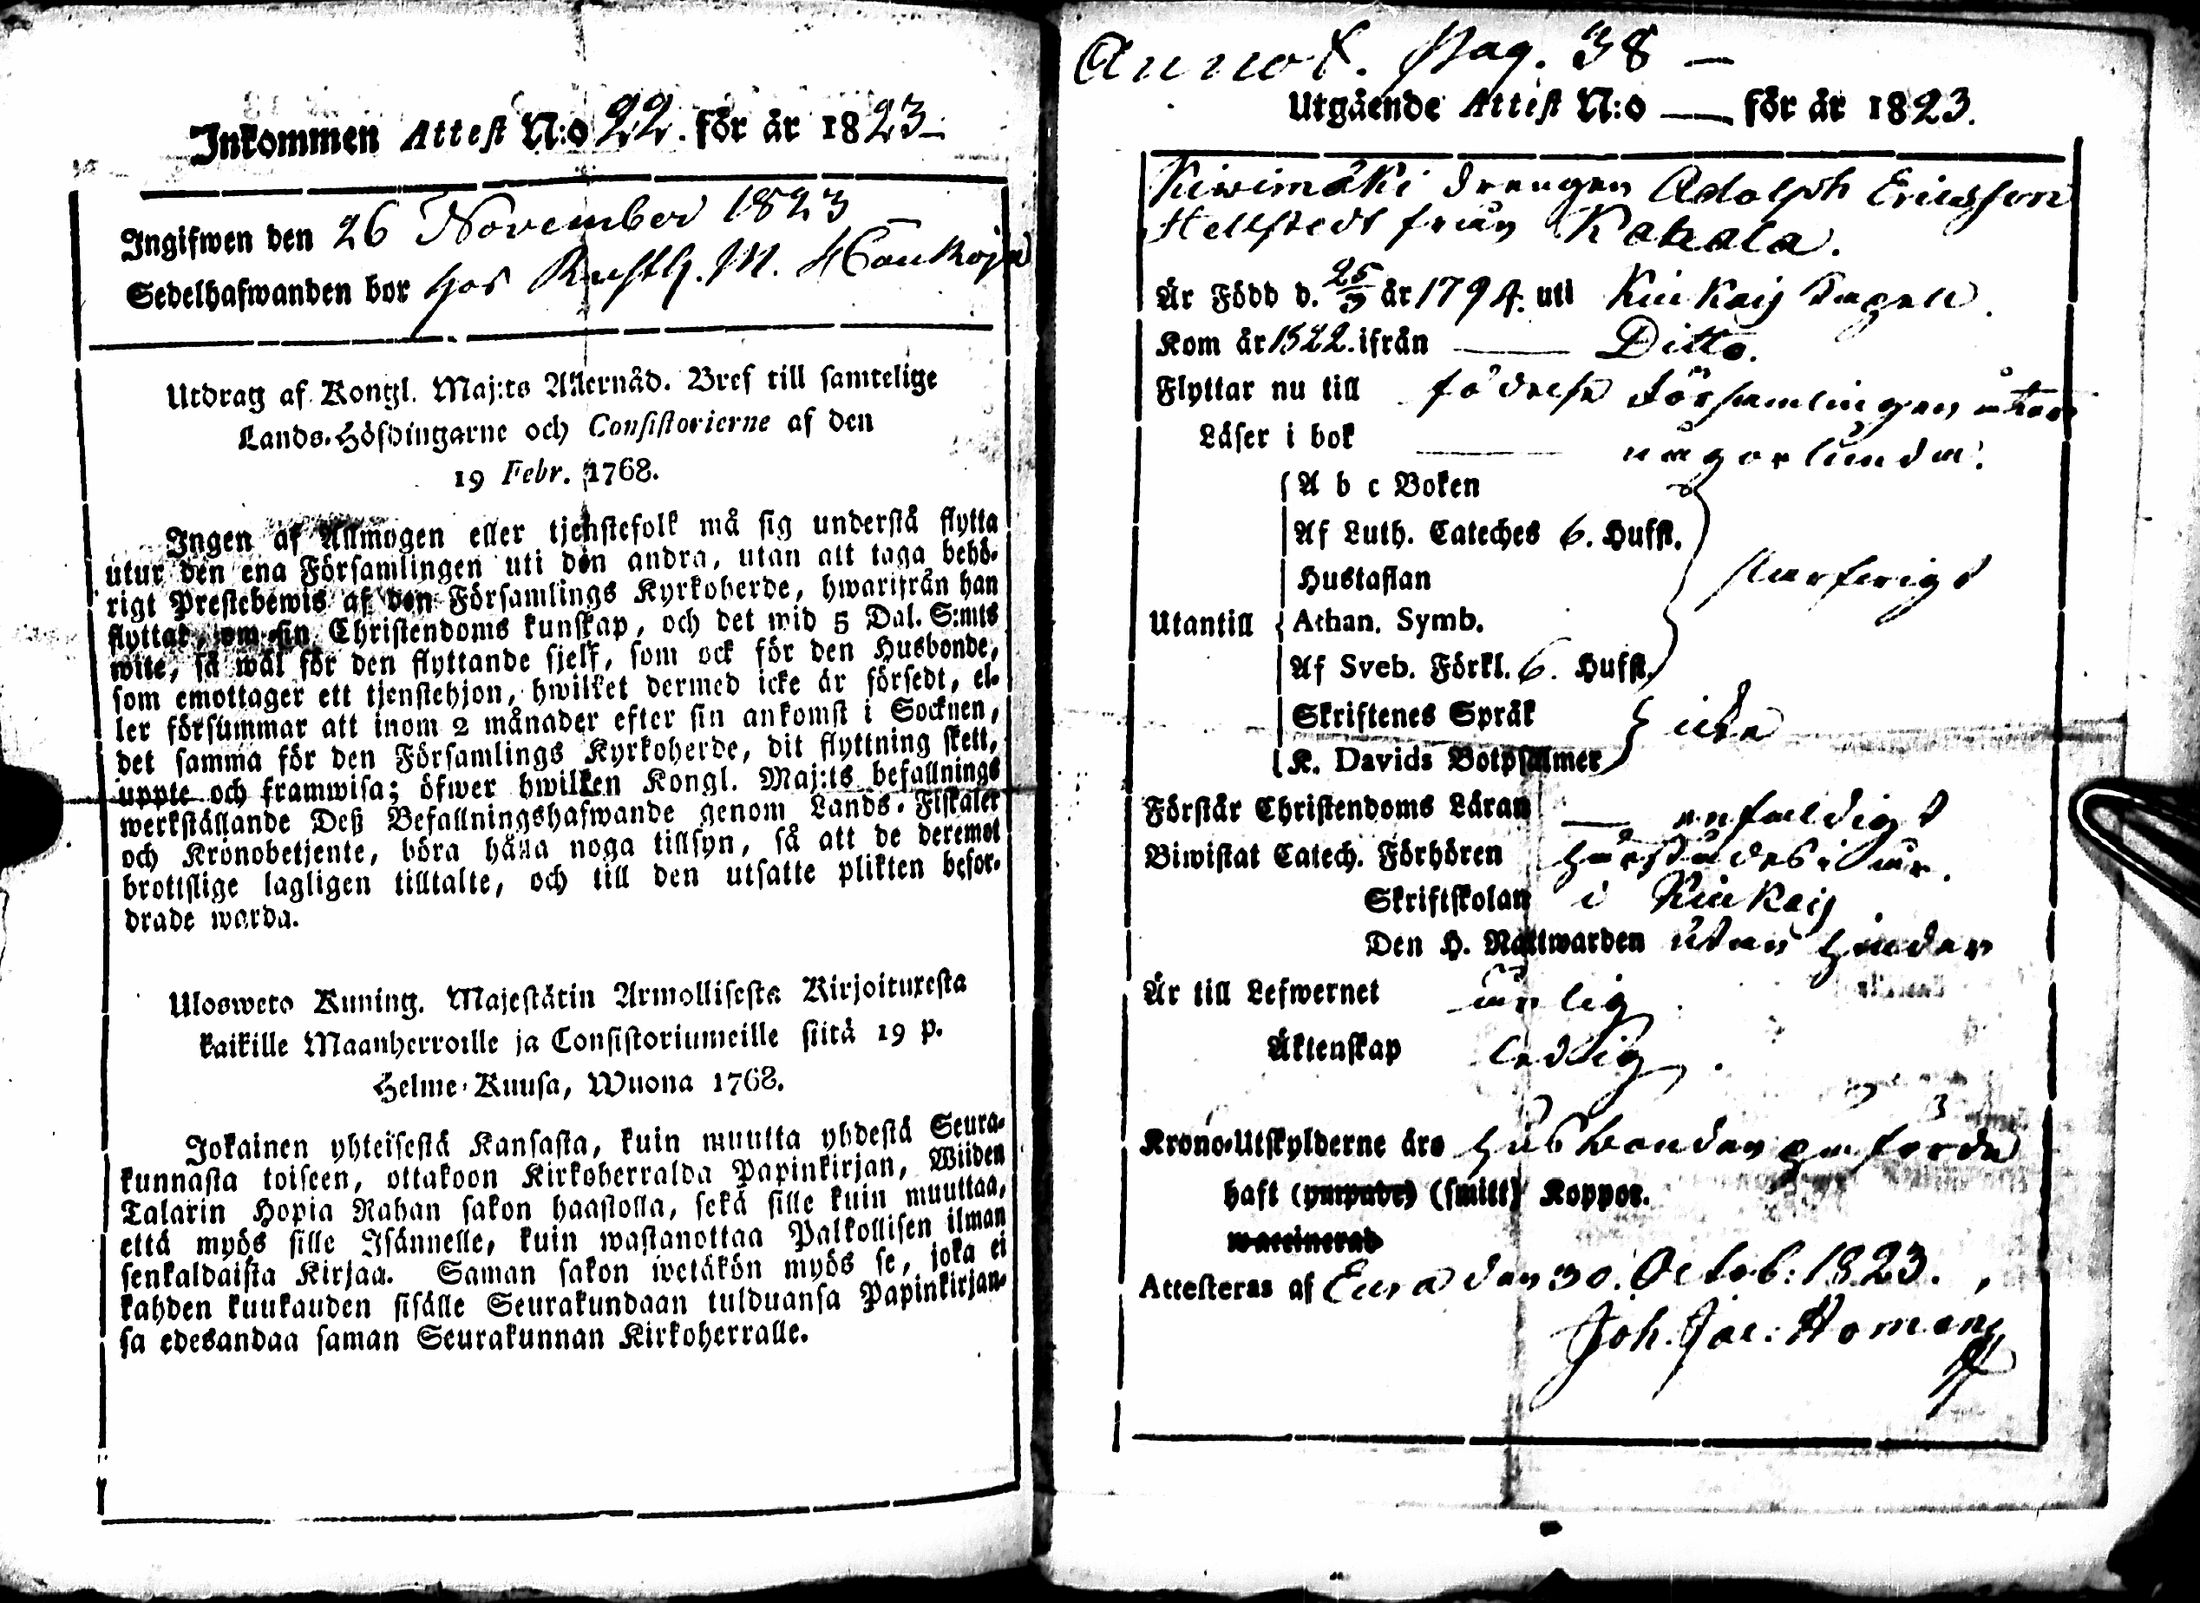 Inkommen Attest N:o 22. för år 1823
Ingifwen den 26 November 1823
Sedelhafwanden bor hos Rusth. M.
Utdrag af Kongl. Maj:ts Allernåd. Bref till samtelige
Lands-Höfdingarne och Consistorierne af den
19 Febr. 1768.
Ingen af Allmogen eller tjenstefolk må sig understå flytta
utur den ena Församlingen uti den andra, utan att taga behö-
rigt Prestebewis af den Församlings Kyrkoherde, hwarifrån han
flyttat, om sin Christendoms kunskap, och det wid 5 Dal. S:mts
wite, så wäl för den flyttande sjelf, som ock för den Husbonde,
som emottager ett tjenstehjon, hwilket dermed icke är försedt, el-
ler försummar att inom 2 månader efter sin ankomst i Socknen,
det samma för den Församlings Kyrkoherde, dit flyttning skett,
uppte och framwisa; öfwer hwilken Kongl. Maj:ts befallnings
werkställande Deß Befallningshafwande genom Lands-Fiskaler
och Kronobetjente, böra hålla noga tillsyn, så att de deremot
brottslige lagligen tilltalte, och till den utsatte plikten befor-
drade warda.
Ulosweto Kuning. Majestätin Armollisesta Kirjoituxesta
kaikille Maanherroille ja Consistoriumeille siitä 19 p.
Helme-Kuusa, Wuona 1768.
Jokainen yhteisestä Kansasta, kuin muutta yhdestä Seura-
kunnasta toiseen, ottakoon Kirkoherralda Papinkirjan, Wiiden
Talarin Hopia Rahan sakon haastolla, sekä sille kuin muuttaa,
että myös sille Isännelle, kuin wastanottaa Palkollisen ilman
senkaldaista Kirjaa. Saman sakon wetäkön myös se, joka ei
kahden kuukauden sisälle Seurakundaan tulduansa Papinkirjan-
sa edesandaa saman Seurakunnan Kirkoherralle.
Annot. Pag. 38 —
Utgående Attest N:o — för år 1823.
Kiwimäki drengen Adolph Ericsson
Hellstedt från Kakala.
Är Född d. 25/3 år 1794. uti Kiukais Capell.
Kom år 1822. ifrån — Ditto.
Flyttar nu till födelse Församlingen åter
Läser i bok — någorlunda.
A b c Boken
Af Luth. Cateches 6. Hufst.
Hustaflan
Utantill Athan. Symb.
Af Sveb. Förkl. 6. Hufst.
Skriftenes Språk
icke
K. Davids Botpsalmer
Förstår Christendoms Läran — enfaldigt
Biwistat Catech. Förhören härstädes i år.
Skriftskolan i Kiukais
Den H. Nattwarden utan hinder
Är till Lefwernet ärlig
Äktenskap ledig.
Krono-Utskylderne äro husbonden påförde
haft (ympade) (smitt) Koppor.
waccinerad
Attesteras af Eura den 30. Octob: 1823.
Joh. Jac: Homen